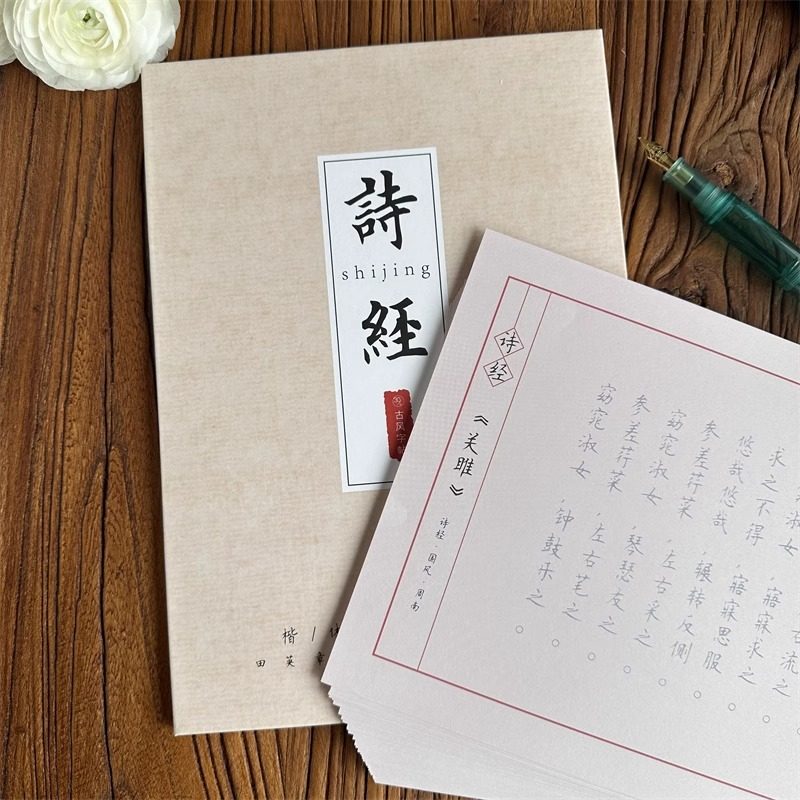 詩
shijing
經
古风字帖
楷/
田英章
诗经
《关雎》
诗经·国风·周南
流之
淑女，寤寐求之。
求之不得，寤寐思服。
悠哉悠哉，辗转反侧。
参差荇菜，左右采之。
窈窕淑女，琴瑟友之。
参差荇菜，左右芼之。
窈窕淑女，钟鼓乐之。